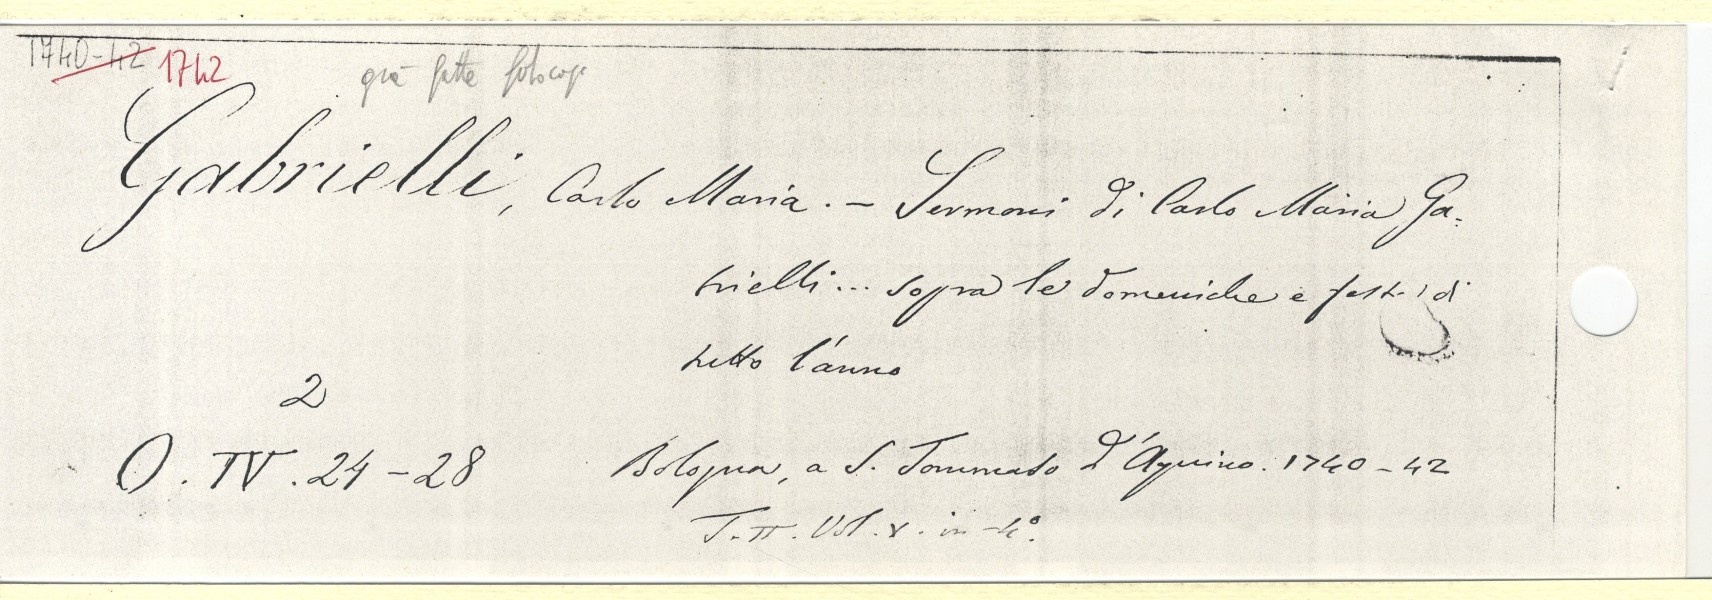 1740-42 1742
già fatte fotocop
Gabrielli, Carlo Maria. - Sermoni di Carlo Maria Ga-
brielli... sopra le domeniche e feste di
tutto l'anno
2
O. IV. 24-28 Bologna, a S. Tommaso d'Aquino. 1740-42
T. II. Vol. V. in-4°.